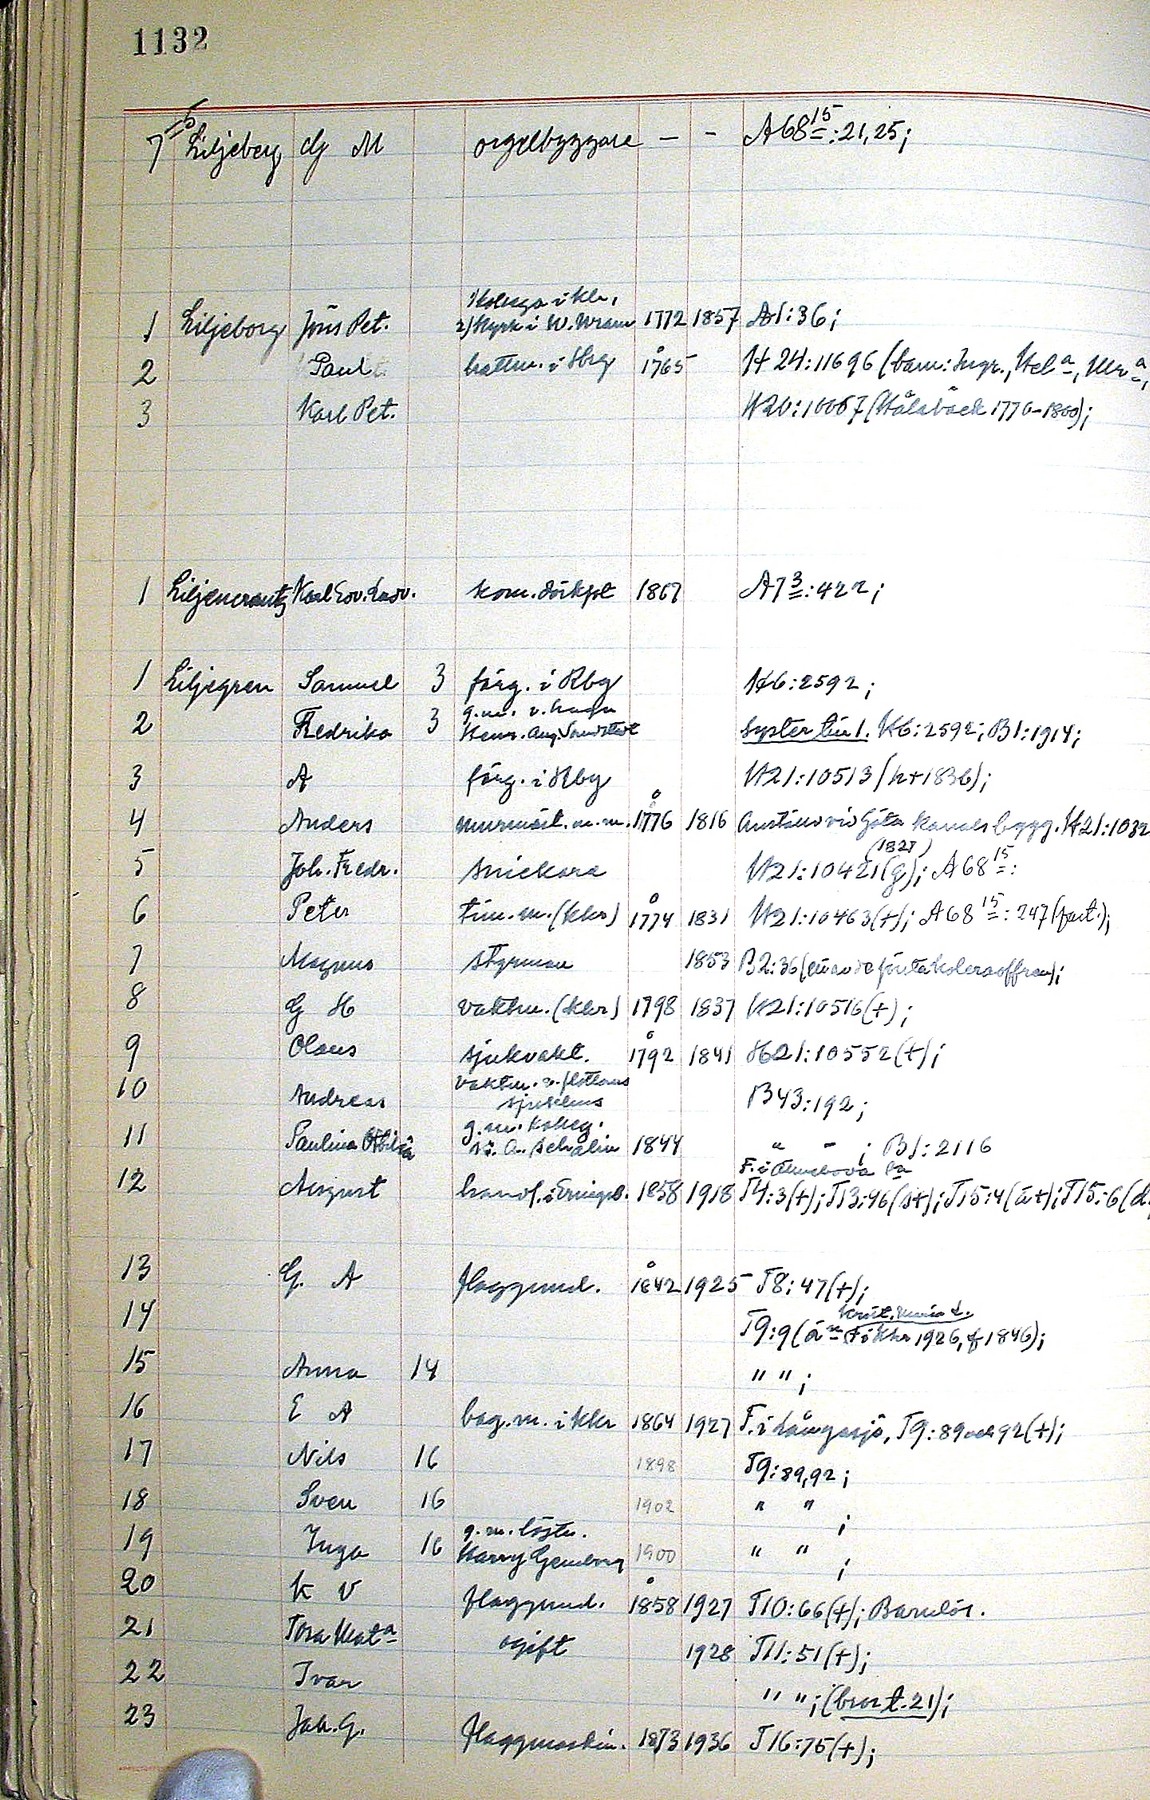 1132
75 Liljeberg G M orgelbyggare - - A68 15: 21, 25;
1) kollega i Kkr,
1 Liljeborg Jöns Pet. 2) kyrkh i W. Wram 1772 1857 A1:36;
2 Paul hattm. i Hbg 1765 H 24:11696 (barn: Ingr., Hel a,
3 Karl Pet. H20:10067 (Hålabäck 1770-1800);
1 Liljencrantz Karl Edv. Gust. kom. sörkpt 1867 A7 3: 422;
1 Liljegren Samuel 3 färg. i Kbg H6:2592;
g.m. v.
2 Fredrika 3 Henr. Aug. Sandstedt syster till 1. H6:2592; B1:1914;
3 A färg. i Kbg H21:10513 (h+1836);
4 Anders murmäst. m.m. 1776 1816 Anställd vid Göta kanals bygg. H21:1032
(1827)
5 Joh. Fredr. snickare H21:10421(g); A68 15:
6 Peter tim. m. (Kkr) 1774 1831 H21:10463(+); A68 15: 247 (fart.);
7 Magnus styrman 1853 B2:36 (en av de första koleraoffren);
8 G H vaktm. (Kkr) 1798 1837 H21:10516(+);
9 Olaus sjukvakt. 1792 1841 H21:10552(+);
vaktm. v. flottans
10 Andreas sjukhus B43:192;
g.m. kolleg.
11 Paulina Otilia A. Schalin 1844 " " ; B1:2116
F. i Almeboda
12 August handl. i Eringsb. 1858 1918 T4:3(+); T13:96(st); T15:4(ä+); T15:6(d
13 G. A flaggund. 1842 1925 T8:47(+);
Krist. Maria L.
14 T9:9 (ä F i Kkr 1926, f 1846);
15 Anna 14 " " ;
16 E A bag. m. i Kkr 1864 1927 F. i Långasjö, T9:89 och 92(+);
17 Nils 16 1898 T9:89,92;
18 Sven 16 1902 " " ;
g.m. löjtn.
19 Inga 16 Harry 1900 " " ;
20 K V flaggund. 1858 1927 T10:66(+); Barnlös.
21 Tora Mat a ogift 1928 T11:51(+);
22 Ivar " " ; (bror t. 21);
23 Joh. G. flaggmaskin. 1873 1936 T16:75(+);